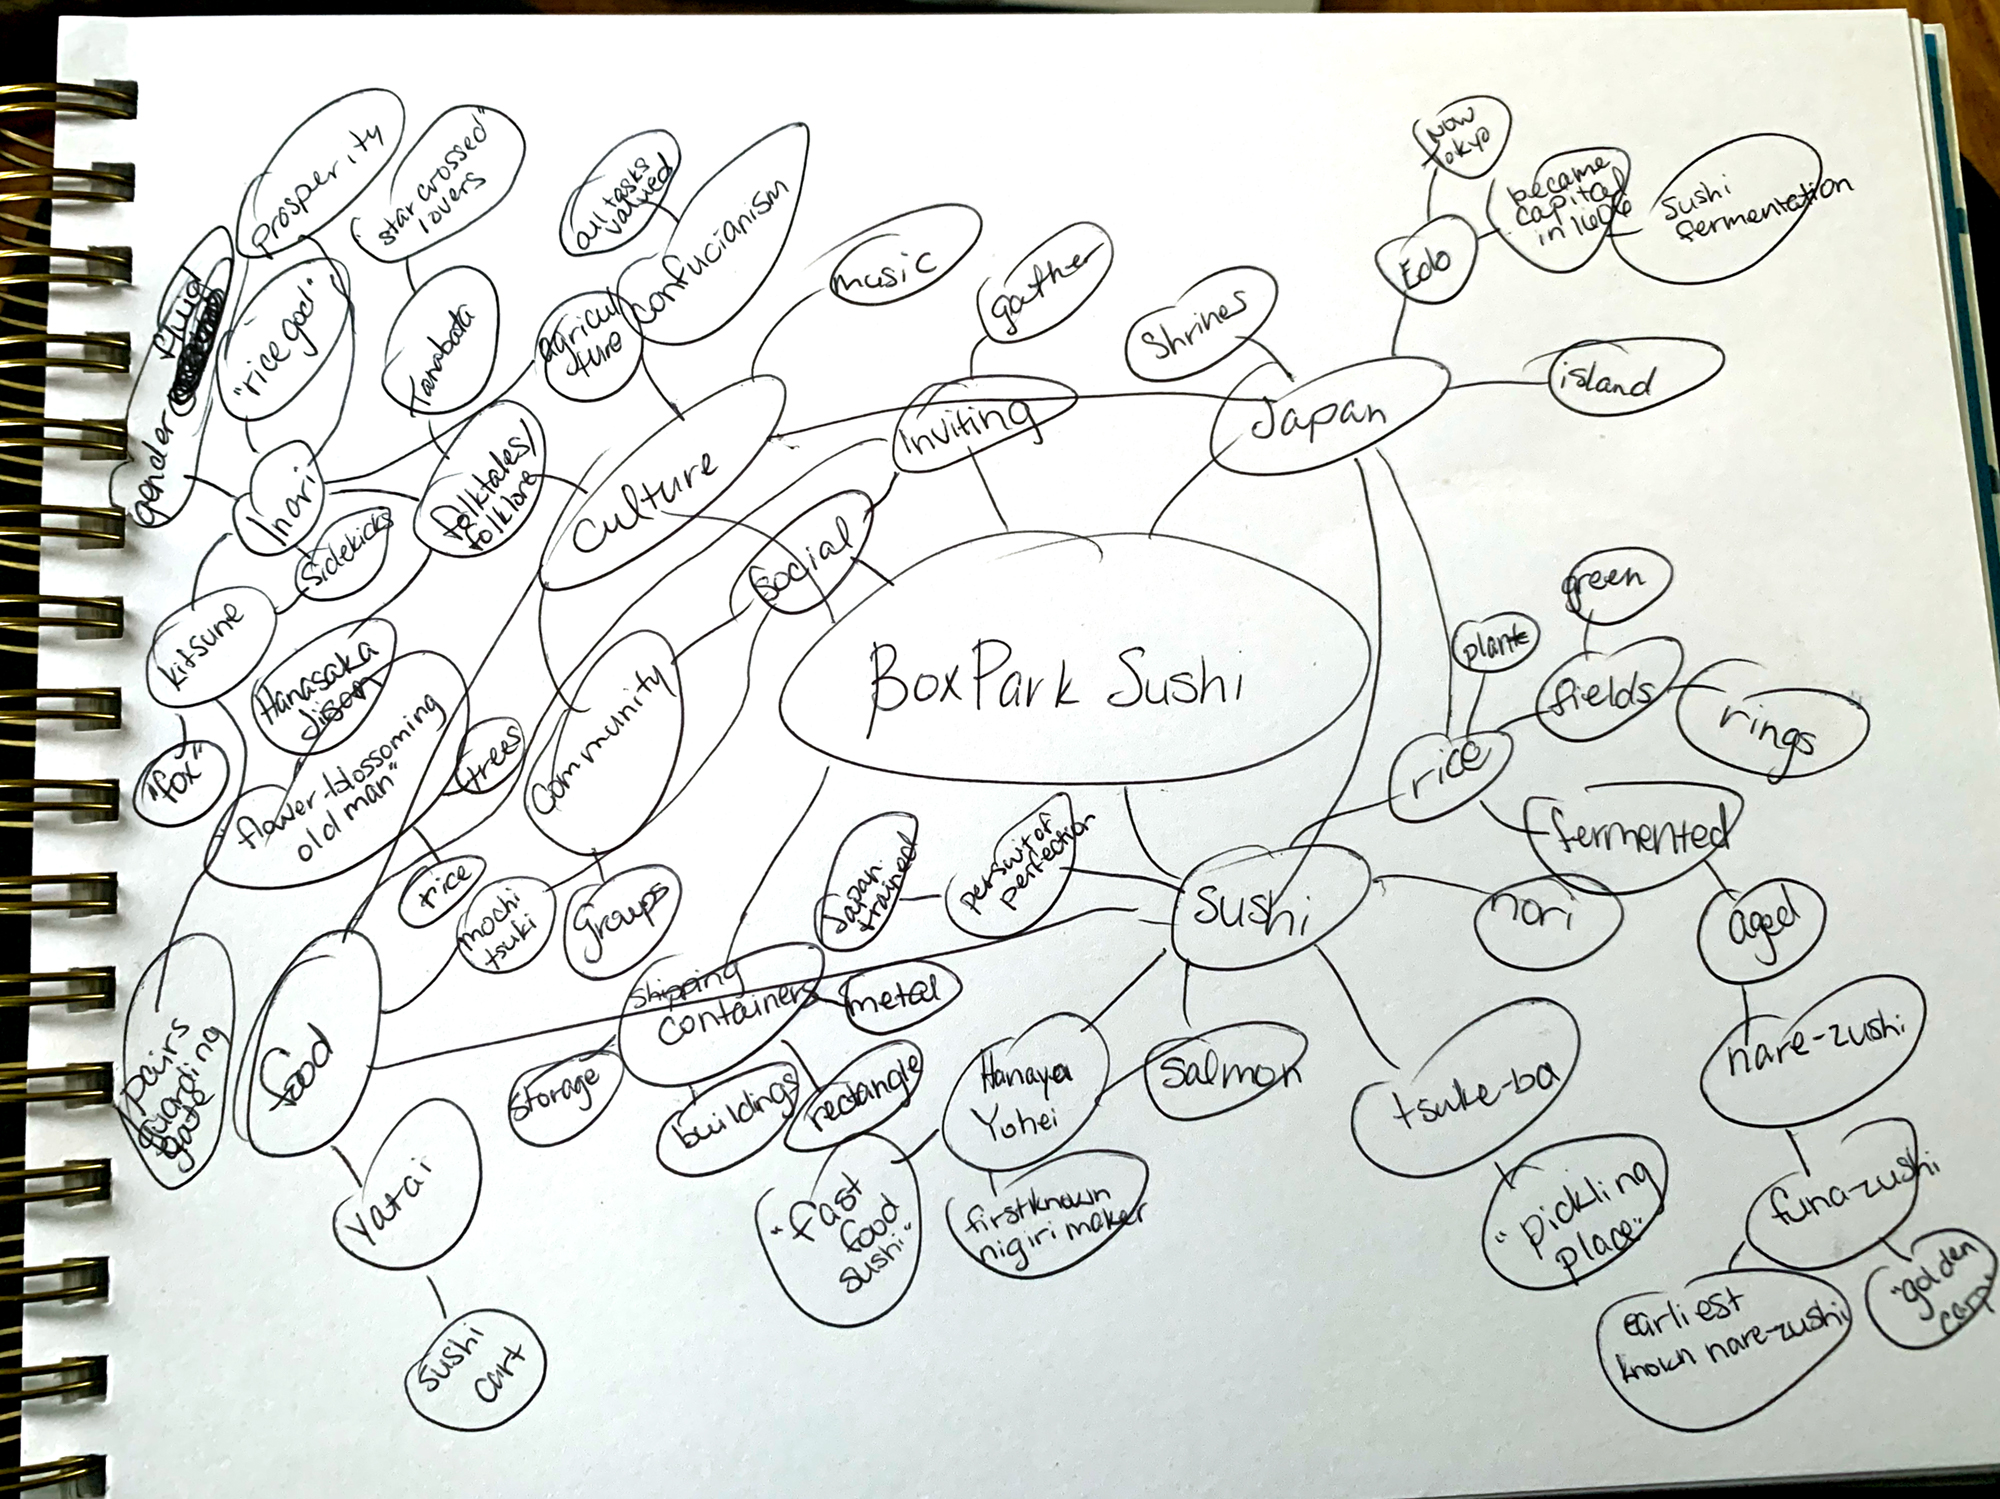 prosperity
"star crossed"
lovers
all tasks
valued
Confucianism
music
gather
Shrines
Now
Tokyo
became
capital
in 1606
Sushi
fermentation
Edo
island
gender fluid
"rice god"
Tanabata
agricul/
ture
Inviting
Japan
Inari
folktales/
folklore
culture
sidekicks
social
kitsune
Hanasaka
Jiisan
"fox"
"flower-blossoming
old man"
trees
community
BoxPark Sushi
green
plant
fields
rings
rice
fermented
nori
aged
rice
mochi
tsuki
groups
Japan
trained
persuit of
perfection
Sushi
pairs
guarding
gate
food
shipping
containers
metal
storage
buildings
rectangle
Hanaya
Yohei
salmon
tsuke-ba
nare-zushi
Yatai
"fast
food
sushi"
first known
nigiri maker
"pickling
place"
funa-zushi
"golden
carp"
earliest
known nare-zushi
sushi
cart